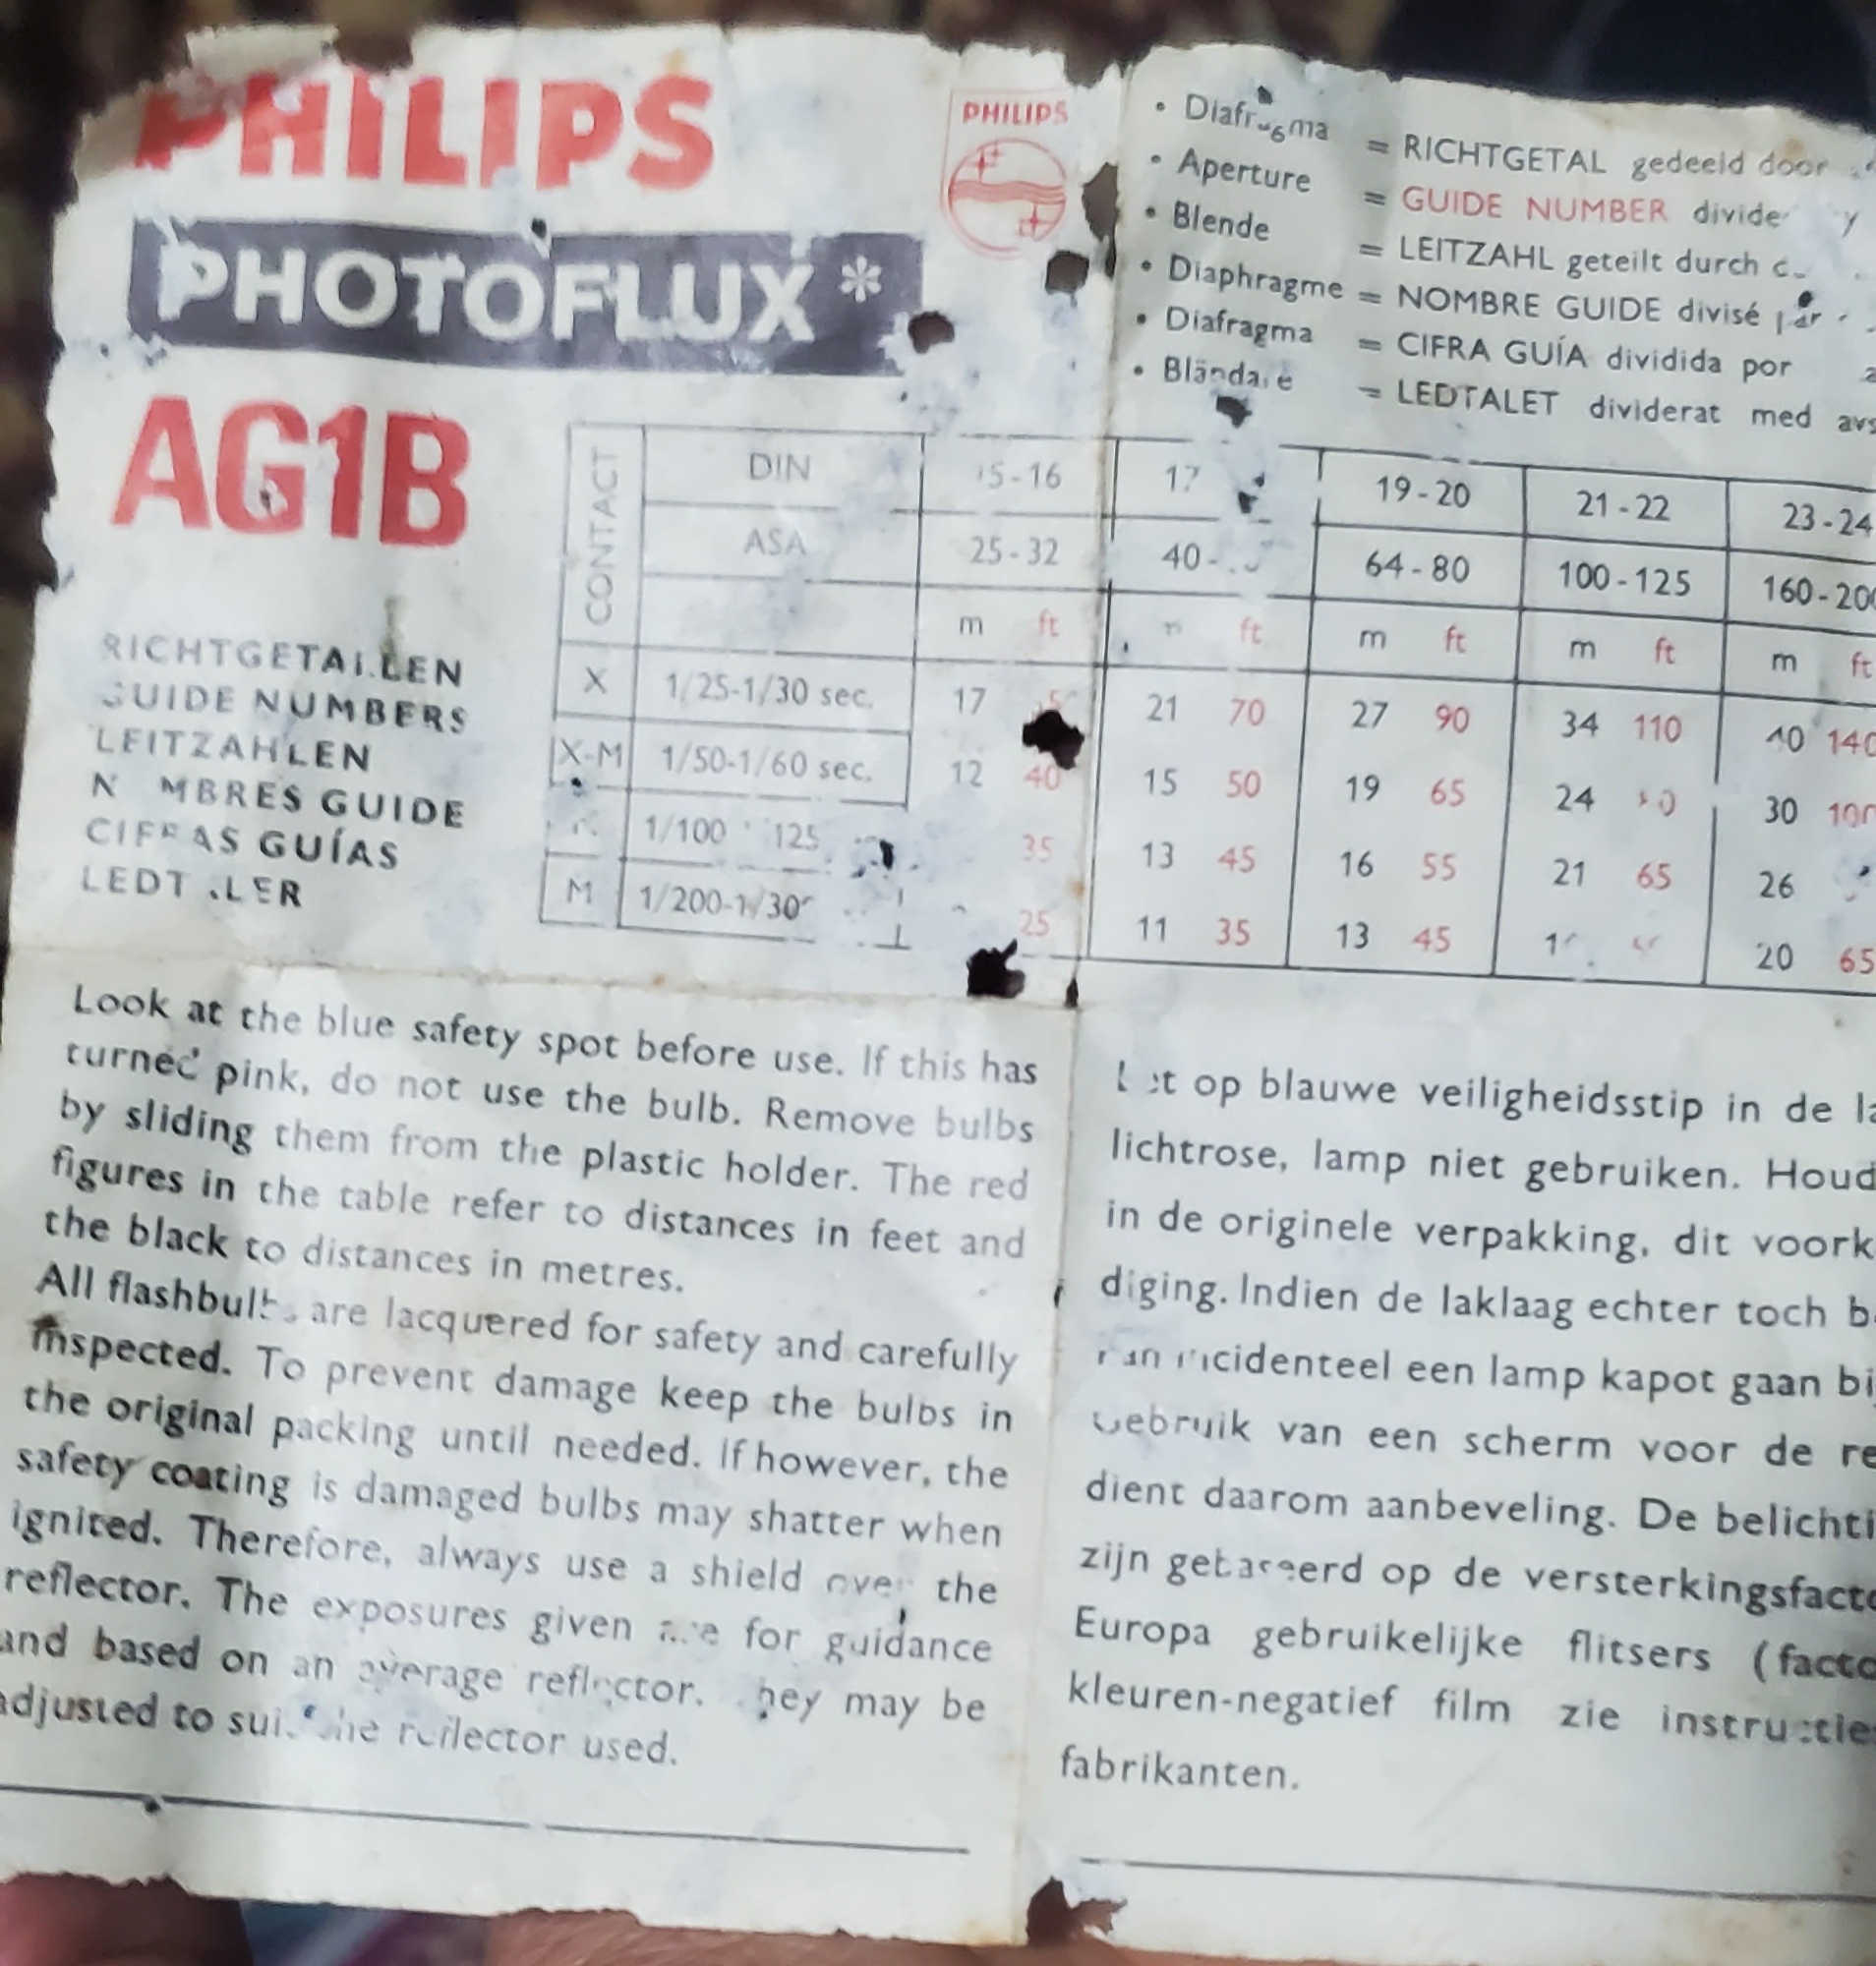 PHILIPS
PHILIPS
PHOTOFLUX*
AG1B
RICHTGETALLEN
GUIDE NUMBERS
LEITZAHLEN
GUIDE
CIFRAS GUÍAS
• Diafragma = RICHTGETAL gedeeld door
• Aperture = GUIDE NUMBER
• Blende = LEITZAHL geteilt durch
• Diaphragme = NOMBRE GUIDE divisé
• Diafragma = CIFRA GUÍA dividida por
• Bländare = LEDTALET dividerat med
CONTACT
DIN 15-16 17 19-20 21-22 23-24
ASA 25-32 40- 64-80 100-125 160-200
m ft ft m ft m ft m ft
X 1/25-1/30 sec. 17 21 70 27 90 34 110 40 140
X-M 1/50-1/60 sec. 12 40 15 50 19 65 24 30 100
1/100 125 35 13 45 16 55 21 65 26
M 1/200-1/30 25 11 35 13 45 20 65
Look at the blue safety spot before use. If this has
turned pink, do not use the bulb. Remove bulbs
by sliding them from the plastic holder. The red
figures in the table refer to distances in feet and
the black to distances in metres.
All flashbulbs are lacquered for safety and carefully
inspected. To prevent damage keep the bulbs in
the original packing until needed. If however, the
safety coating is damaged bulbs may shatter when
ignited. Therefore, always use a shield over the
reflector. The exposures given are for guidance
and based on an average reflector. They may be
adjusted to suit the reflector used.
op blauwe veiligheidsstip in de
lichtrose, lamp niet gebruiken. Houd
in de originele verpakking, dit voork
diging. Indien de laklaag echter toch
kan incidenteel een lamp kapot gaan
Gebruik van een scherm voor de
dient daarom aanbeveling. De belichti
zijn gebaseerd op de versterkingsfacto
Europa gebruikelijke flitsers (facto
kleuren-negatief film zie instructie
fabrikanten.